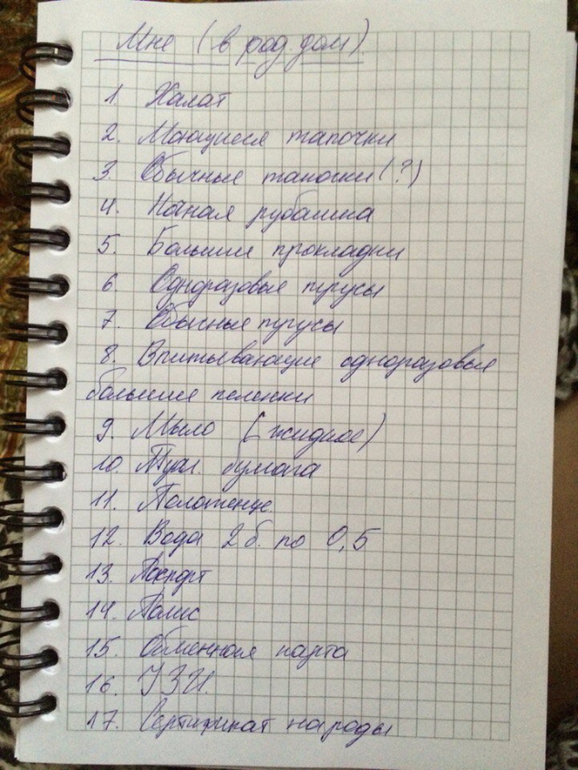 Мне (в род дом).
1 Халат
2. Моющиеся тапочки
3. Обычные тапочки (?)
4. Ночная рубашка
5. Большие прокладки
6. Одноразовые трусы
7. Обычные трусы
8. Впитывающие одноразовые
большие пеленки
9. Мыло (жидкое)
10. Туал. бумага
11. Полотенце
12. Вода 2 б. по 0,5
13. Паспорт
14. Полис
15. Обменная карта
16. УЗИ.
17. Сертификат на роды